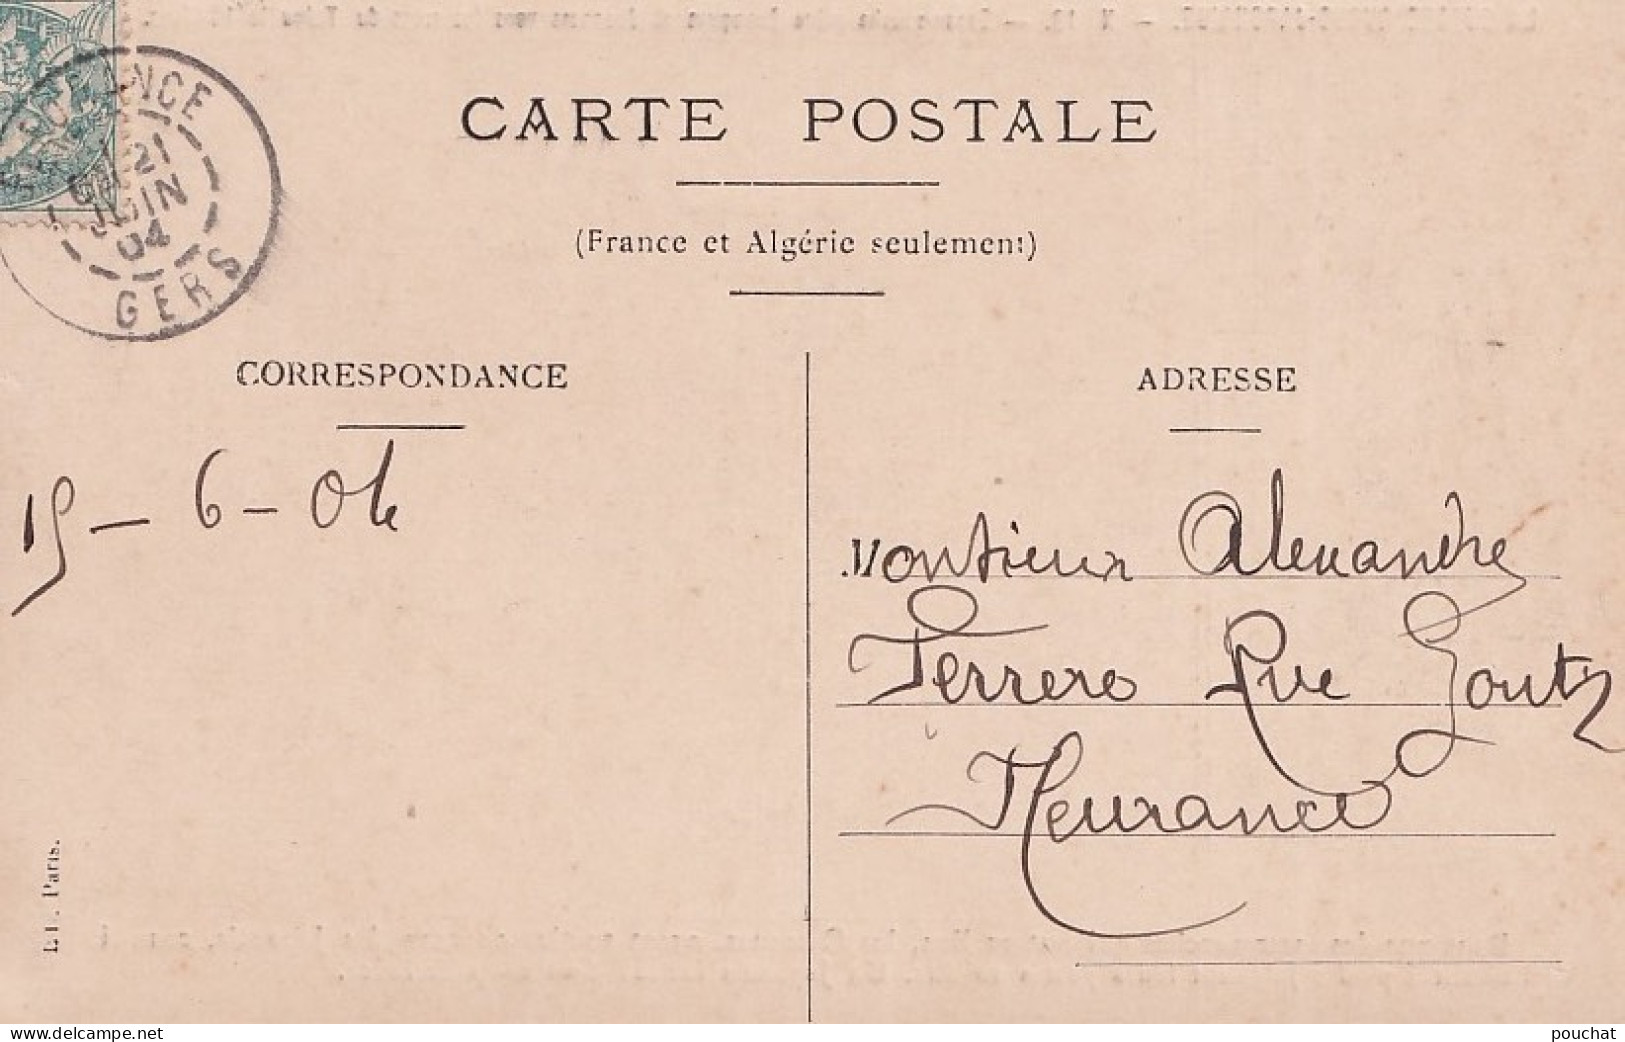 CARTE POSTALE
(France et Algérie seulement)
21
JUIN
04
GERS
CORRESPONDANCE
ADRESSE
15 - 6 - 04
Monsieur Alexandre
Ferrero Rue Goutz
Fleurance
Paris.
www.delcampe.net
pouchat